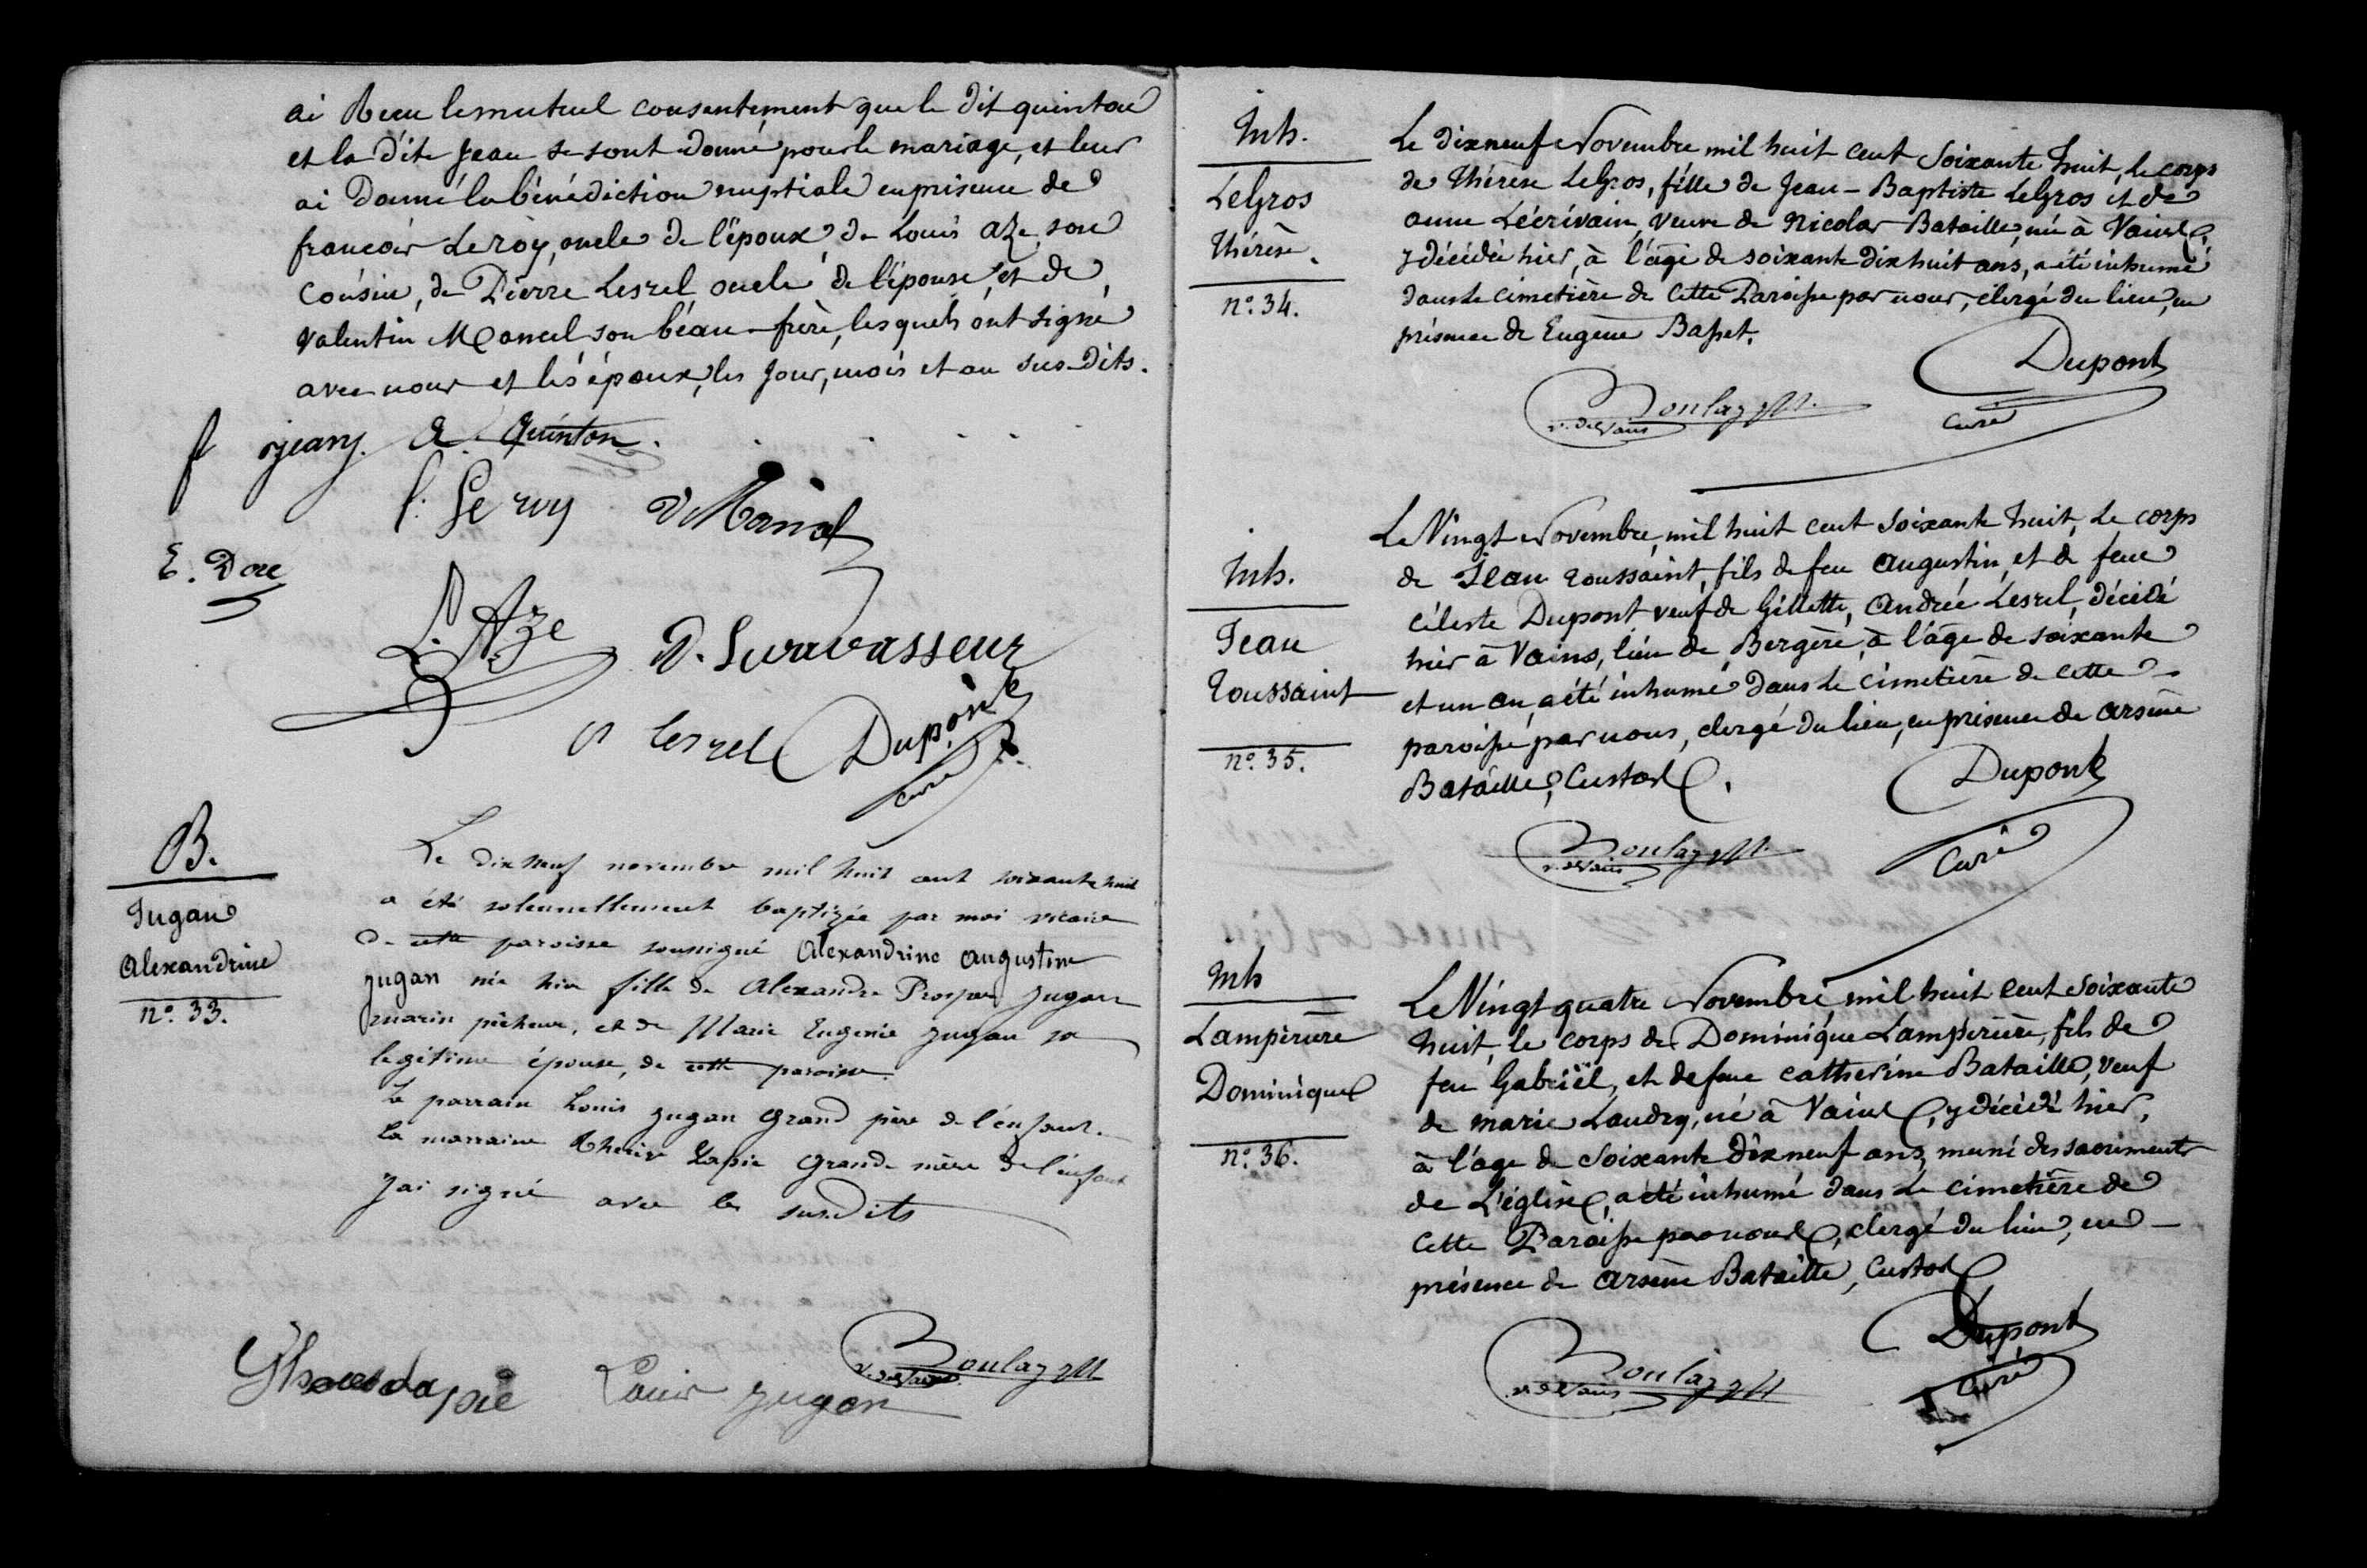 ai Recu le mutuel consentement que le dit quinton
et la dite Jean se sont donné pour le mariage, et leur
ai donné la bénédiction nuptiale en présence de
françois Le roy, oncle de l'époux, de Louis aze, son
Cousin, de Pierre Lesrel oncle de l'épouse, et de
Valentin Mancel son béau-frère, lesquels ont signé
avec nous et les époux, les Jour, mois et an sus-dits.
f jean A. Quinton.
f. Le roy V Mancel
E. Doré
L. Aze D. Levavasseur
P lesrel Dupont
curé
B.
Jugan
Alexandrine
n°. 33.
Le dix neuf novembre mil huit cent soixante huit
a été solennellement baptizée par moi vicaire
de cette paroisse soussigné Alexandrine Augustine
Jugan née hier fille de Alexandre Prosper Jugan
marin pêcheur, et de Marie Eugenie Jugan sa
legitime épouse, de cette paroisse.
Le parrain Louis Jugan Grand père de l'enfant.
La marraine Lapie Grande mère de l'enfant
J'ai signé avec les susdits
Lapie Louis Jugan Boulay
v. de Vains
Inh.
LeGros
Thérèse.
n°. 34.
Le dix neuf Novembre mil huit cent Soixante huit, le corps
de Thérèse LeGros, fille de Jean-Baptiste LeGros et de
anne Lécrivain, veuve de Nicolas Bataille, née à Vains,
y décédée hier, à l'âge de soixante dix huit ans, a été inhumé
dans le cimetière de cette Paroisse par nous, clergé du lieu, en
présence de Eugène Basset.
Dupont
Curé
Boulay
v. de Vains
Inh.
Jean
Toussaint
n°. 35.
Le Vingt Novembre, mil huit cent soixante huit, Le corps
de Jean Toussaint, fils de feu Augustin, et de feue
Céleste Dupont veuf de Gillette, Andrée Lesrel, décédé
hier à Vains, lieu de Bergère, à l'âge de soixante
et un an, a été inhumé dans le cimetière de cette
paroisse par nous, clergé du lieu, en présence de Arsène
Bataille, Custos.
Dupont
Curé
Boulay
v. de Vains
Inh
Lampérière
Dominique
n°. 36.
Le Vingt quatre Novembre, mil huit cent Soixante
huit, le corps de Dominique Lampérière, fils de
feu Gabriël, et de feue Catherine Bataille, veuf
de marie Laudry, né à Vains, y décédé hier,
à l'âge de Soixante dix neuf ans, muni des sacrements
de L'église, a été inhumé dans Le cimetière de
Cette Paroisse par nous, clergé du lieu, en
présence de Arsène Bataille, Custos
Dupont
Curé
Boulay
v. de Vains